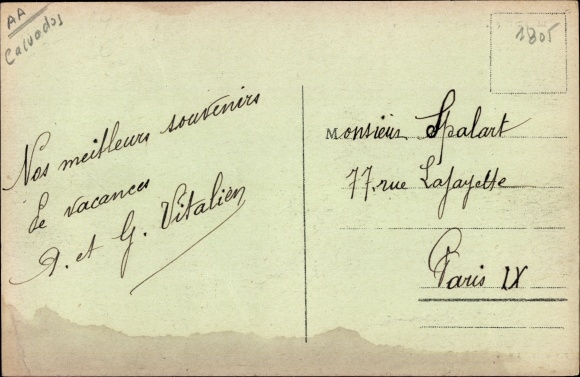 AA
Calvados
1805
Nos meilleurs souvenirs
de vacances
A. et G. Vitalien
Monsieur Spalart
77, rue Lafayette
Paris IX